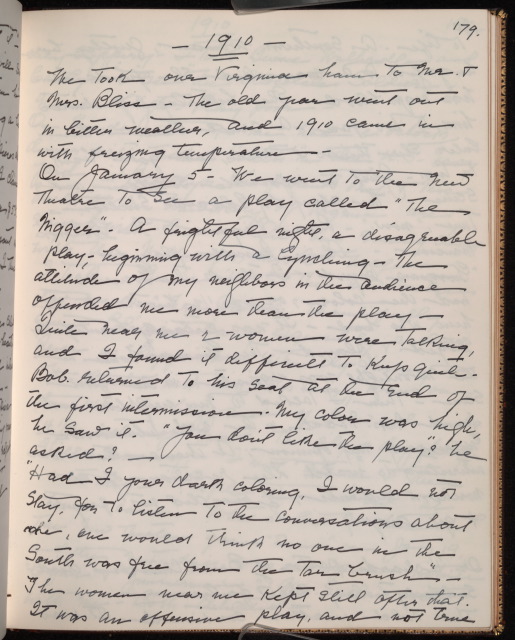 179.
- 1910 -
We took over Virginia ham to Mr. &
Mrs. Bliss - The old year went out
in bitter weather, and 1910 came in
with freezing temperature -
On January 5 - We went to the New
Theatre to see a play called "The
Nigger". A frightful night, a disagreeable
play, beginning with a lynching - The
attitude of my neighbors in the audience
offended me more than the play -
Quite near me 2 women were talking,
and I found it difficult to keep quiet.
Bob returned to his seat at the end of
the first intermission. My color was high,
he saw it. "You don't like the play"? he
asked? -
"Had I your dark coloring, I would not
stay, for to listen to the conversations about
me, one would think no one in the
South was free from the tar brush" -
The women near me kept still after that.
It was an offensive play, and not true